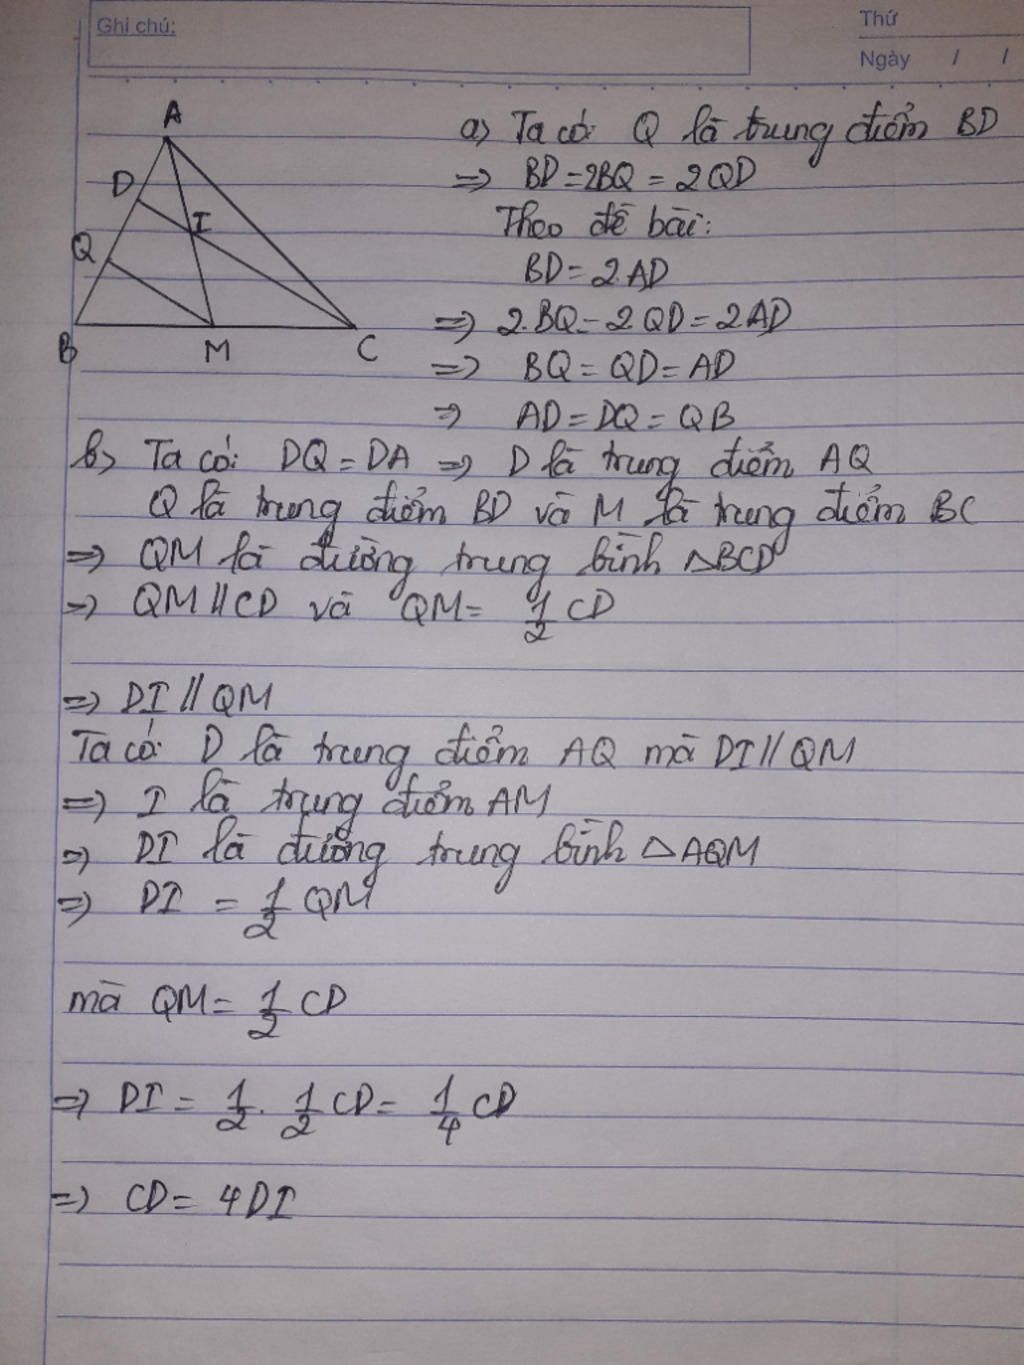 Ghi chú:
Thứ
Ngày / /
A
D
I
Q
B
M
C
a) Ta có: Q là trung điểm BD
=> BD = 2BQ = 2QD
Theo đề bài:
BD = 2.AD
=> 2.BQ = 2QD = 2AD
=> BQ = QD = AD
=> AD = DQ = QB
b) Ta có: DQ = DA => D là trung điểm AQ
Q là trung điểm BD và M là trung điểm BC
=> QM là đường trung bình △BCD
=> QM // CD và QM = 1/2 CD
=> DI // QM
Ta có: D là trung điểm AQ mà DI // QM
=> I là trung điểm AM
=> DI là đường trung bình △AQM
=> DI = 1/2 QM
mà QM = 1/2 CD
=> DI = 1/2 . 1/2 CD = 1/4 CD
=> CD = 4DI